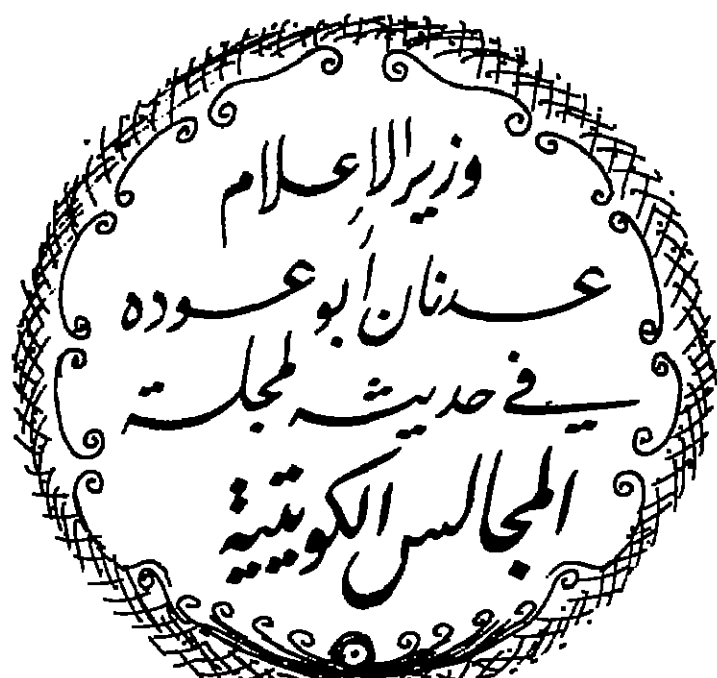 وزير الإعلام
عدنان أبو عوده
في حديث لمجلة
المجالس الكويتية